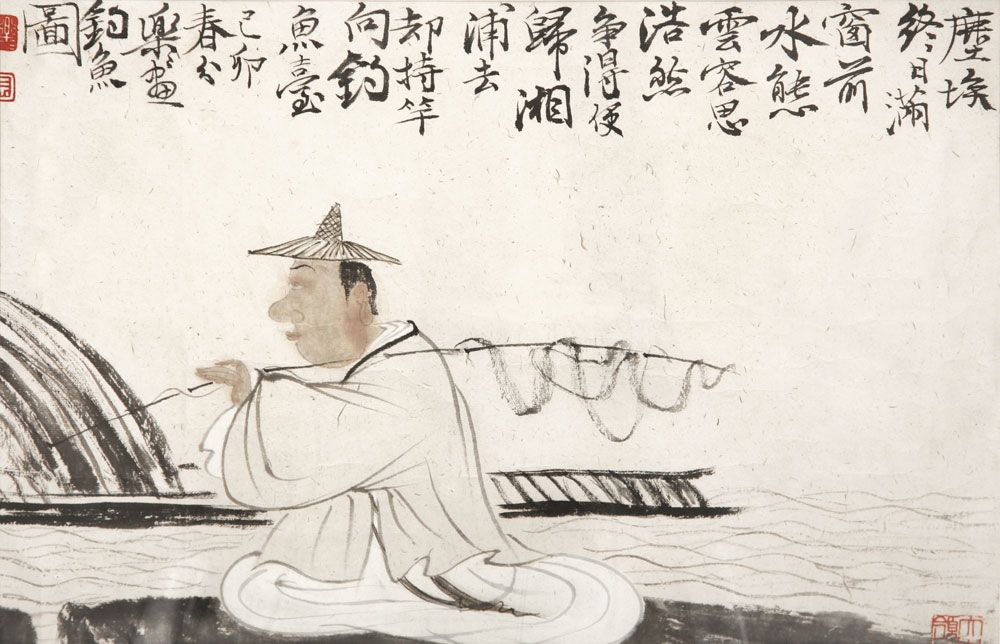 塵埃
終日滿
窗前
水態
雲容思
浩然
争得便
歸湘
浦去
却持竿
向釣
魚臺
己卯
春分
樂畫
釣魚
圖